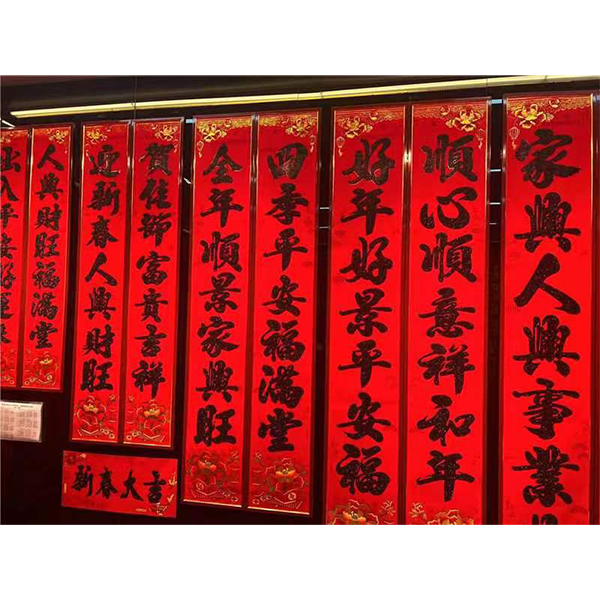 家興人興事業興
順心順意祥和年
好年好景平安福
四季平安福滿堂
全年順景家興旺
賀佳節富貴吉祥
迎新春人興財旺
人興財旺福滿堂
出入平安好運來
新春大吉